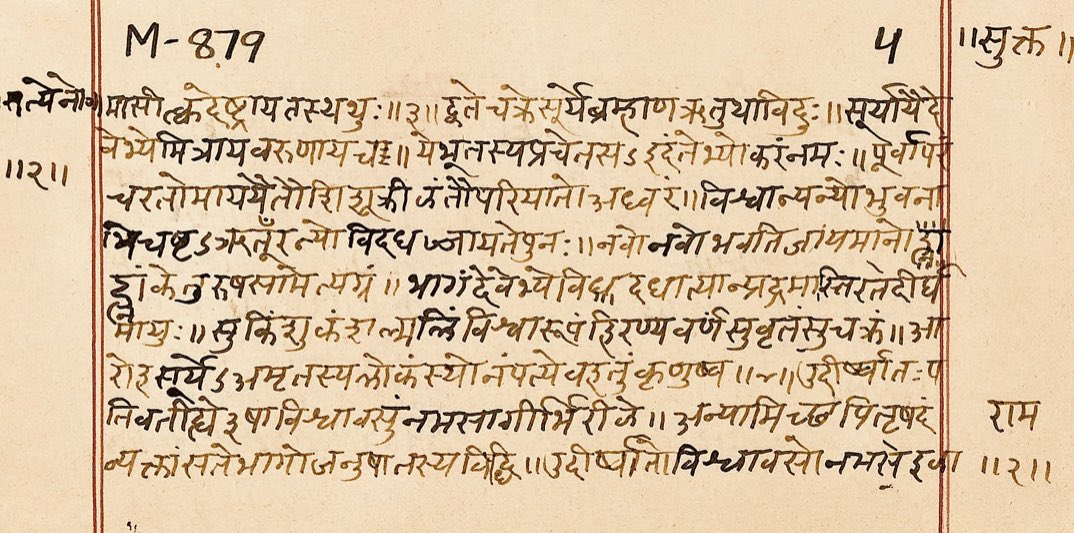 M-879
५
॥सुक्त॥
सत्येनो
॥२॥
मासीत्कंदेष्ट्रायतस्थथुः॥३॥द्वेतेचक्रेसूर्येब्रम्हाणऋतुथाविदुः॥सूर्यायैदे
वेभ्योमित्रायवरुणायच॥येभूतस्यप्रचेतसऽइदंतेभ्योकरंनमः॥पूर्वापरं
चरतोमाययैतौशिशूक्रीळंतौपरियातोअध्वरं॥विश्वान्यन्योभुवना
भिचष्टऽऋतूँरन्योविदधज्जायतेपुनः॥नवोनवोभवतिजायमानो
ह्नांकेतुरुषसामेत्यग्रं॥भागंदेवेभ्योविदधात्यान्प्रद्रमास्तिरतेदीर्घ
मायुः॥सुकिंशुकंशल्मलिंविश्वारूपंहिरण्यवर्णंसुवृतंसुचक्रं॥आ
रोहसूर्येऽअमृतस्यलोकंस्योनंपत्येवहतुंकृणुष्व॥४॥उदीर्ष्वातःप
तिवतीह्ये३षाविश्वावसुंनमसागीर्भिरीळे॥अन्यामिच्छपितृषदं
व्यक्तांसतेभागोजनुषातस्यविद्धि॥उदीर्ष्वातोविश्वावसोनमसेहळा
राम
॥२॥